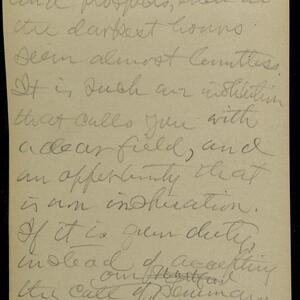 and prospers, even in
the darkest hours
seem almost limitless.
It is such an institution
that calls you with
a clear field, and
an opportunity that
is an inspiration.
If it is your duty,
instead of accepting
our
the call of Seminary